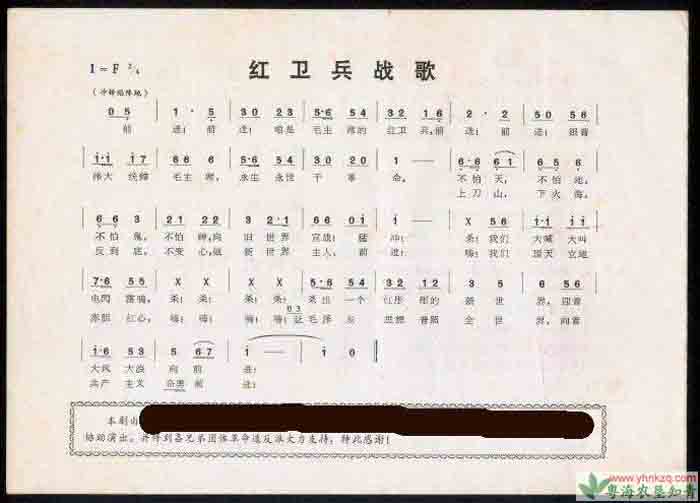 红卫兵战歌
1=F 2/4
(冲锋陷阵地)
0 5 | 1 · 5 | 3 0 2 3 | 5·6 5 4 | 3 2 1 6 | 2 · 2 | 5 0 5 6 |
前 进!前 进!咱是 毛主 席的 红卫 兵,前 进!前 进!跟着
1·1 1 7 | 6 6 6 | 5·6 5 4 | 3 0 2 0 | 1 — | 6·6 6 1 | 6 5 6 |
伟大 统帅 毛主 席, 永生 永世 干 革 命。 不怕 天, 不怕 地,
上刀 山, 下火 海,
6 6 3 | 2 1 2 2 | 3 2·1 | 6 6 0 1 | 1 — | X 5 6 | 1·1 1 1 |
不怕 鬼, 不怕 神,向 旧 世界 宣战!猛 冲! 杀!我们 大喊 大叫
反到 底, 不变 心,做 新 世界 主人,前 进! 嗨!我们 顶天 立地
7·6 5 5 | X X | X X | 5·6 5 4 | 3 2 1 2 | 1 0 5 | 5 5 6 |
电闪 雷鸣, 杀! 杀! 杀! 杀! 杀出 一个 红彤 彤的 新 世 界, 迎着
0 3
赤胆 红心, 嗨! 嗨! 嗨! 嗨!让 毛泽 东 思想 普照 全 世 界, 向着
1·6 5 3 | 5 6 7 | 1 — | 1 0 ‖
大风 大浪 向前 进!
共产 主义 奋勇 前 进!
本剧由
协助演出, 并得到各兄弟团体革命造反派大力支持, 特此感谢!
www.yhnkzq.com
粤海农垦知青